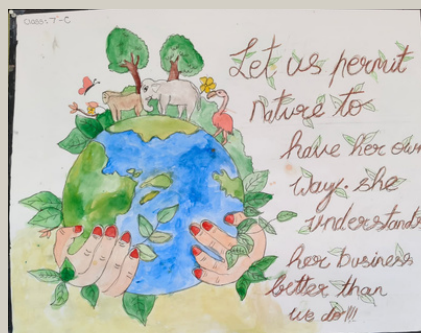 Class:- 7-C
Let us permit
nature to
have her own
way. she
understands
her business
better than
we do!!!